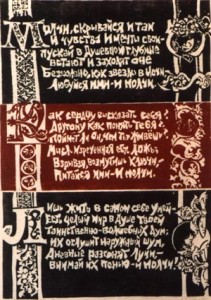 Молчи, скрывайся и таи
И чувства и мечты свои—
Пускай в душевной глубине
Встают и заходят оне
Безмолвно, как звезды в ночи,
Любуйся ими — и молчи.
Как сердцу высказать себя?
Другому как понять тебя?
Поймёт ли он, чем ты живёшь?
Мысль изреченная есть ложь.
Взрывая, возмутишь ключи,—
Питайся ими — и молчи.
Лишь жить в самом себе умей—
Есть целый мир в душе твоей
Таинственно-волшебных дум;
Их оглушит наружный шум,
Дневные разгонят лучи,—
Внимай их пенью — и молчи!